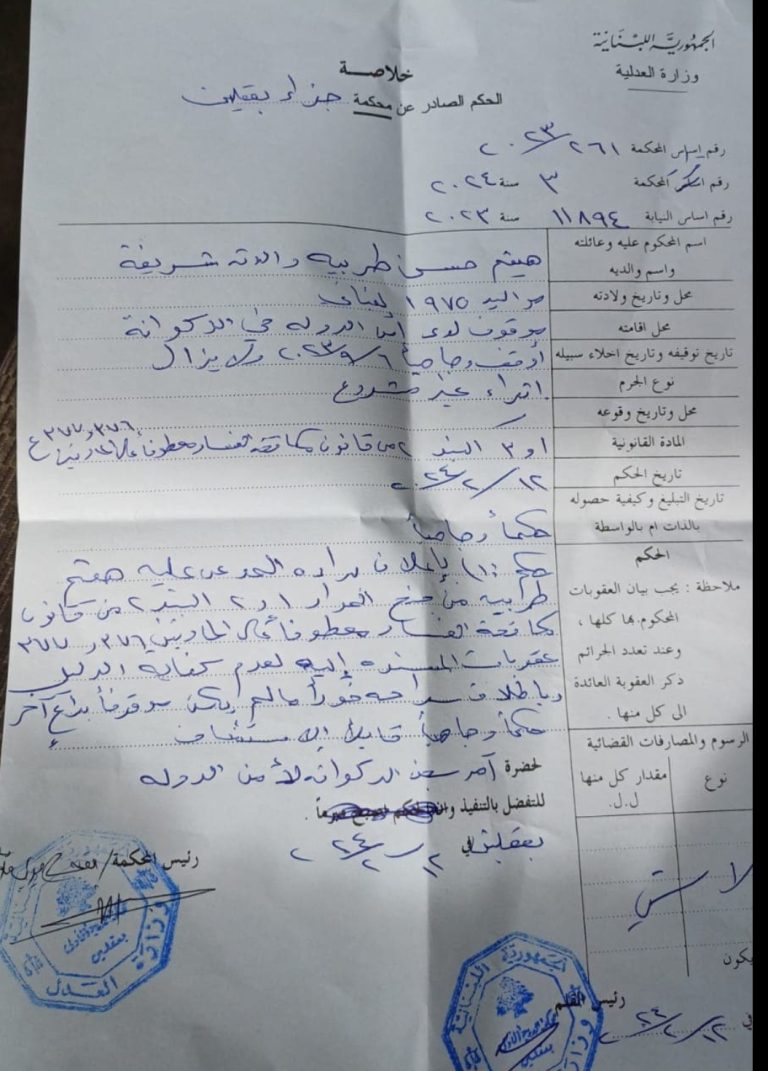 الجمهورية اللبنانية
وزارة العدلية
خلاصة
الحكم الصادر عن محكمة جزاء بعقلين
رقم اساس المحكمة ٢٠٢٣/٢٦١
رقم المحكمة ٣ سنة ٢٠٢٤
رقم اساس النيابة ١١٨٩٤ سنة ٢٠٢٣
اسم المحكوم عليه وعائلته هيثم حسن طربيه والدته شريفة
واسم والديه
محل وتاريخ ولادته مواليد ١٩٧٥ لبناني
محل اقامته موقوف لدى امن الدوله في الدكوانة
تاريخ توقيفه وتاريخ اخلاء سبيله أوقف وجاهياً ٢٠٢٣/٩/٦ ولا يزال
نوع الجرم اثراء غير مشروع
محل وتاريخ وقوعه
المادة القانونية ١ و٣ البند ٢ من قانون مكافحة الفساد معطوفة على المادتين ٣٧٦ و ٣٧٧ ع
تاريخ الحكم ٢٠٢٤/٢/١٢
تاريخ التبليغ وكيفية حصوله
بالذات ام بالواسطة حكماً وجاهياً
الحكم
ملاحظة : يجب بيان العقوبات
المحكوم بها كلها ،
وعند تعدد الجرائم
ذكر العقوبة العائدة
الى كل منها .
حكم : ١) بإعلان براءة المدعى عليه هيثم
طربيه من جنح المواد ١ و ٢ البند ٢ من قانون
مكافحة الفساد معطوفة على المادتين ٣٧٦ و ٣٧٧
عقوبات المسنده إليه لعدم كفاية الدليل
وباطلاق سراحه فوراً ما لم يكن موقوفاً بداعٍ آخر
حكماً وجاهياً قابلاً للإستئناف
الرسوم والمصارفات القضائية
نوع
مقدار كل منها
ل.ل.
لا شي
يكون
لحضرة آمر سجن الدكوانه لأمن الدوله
للتفضل بالتنفيذ
بعقلين في ٢٠٢٤/٢/١٢
رئيس المحكمة /
رئيس القلم
في ٢٠٢٤/٢/١٢
الجمهورية اللبنانية
وزارة العدل
بعقلين